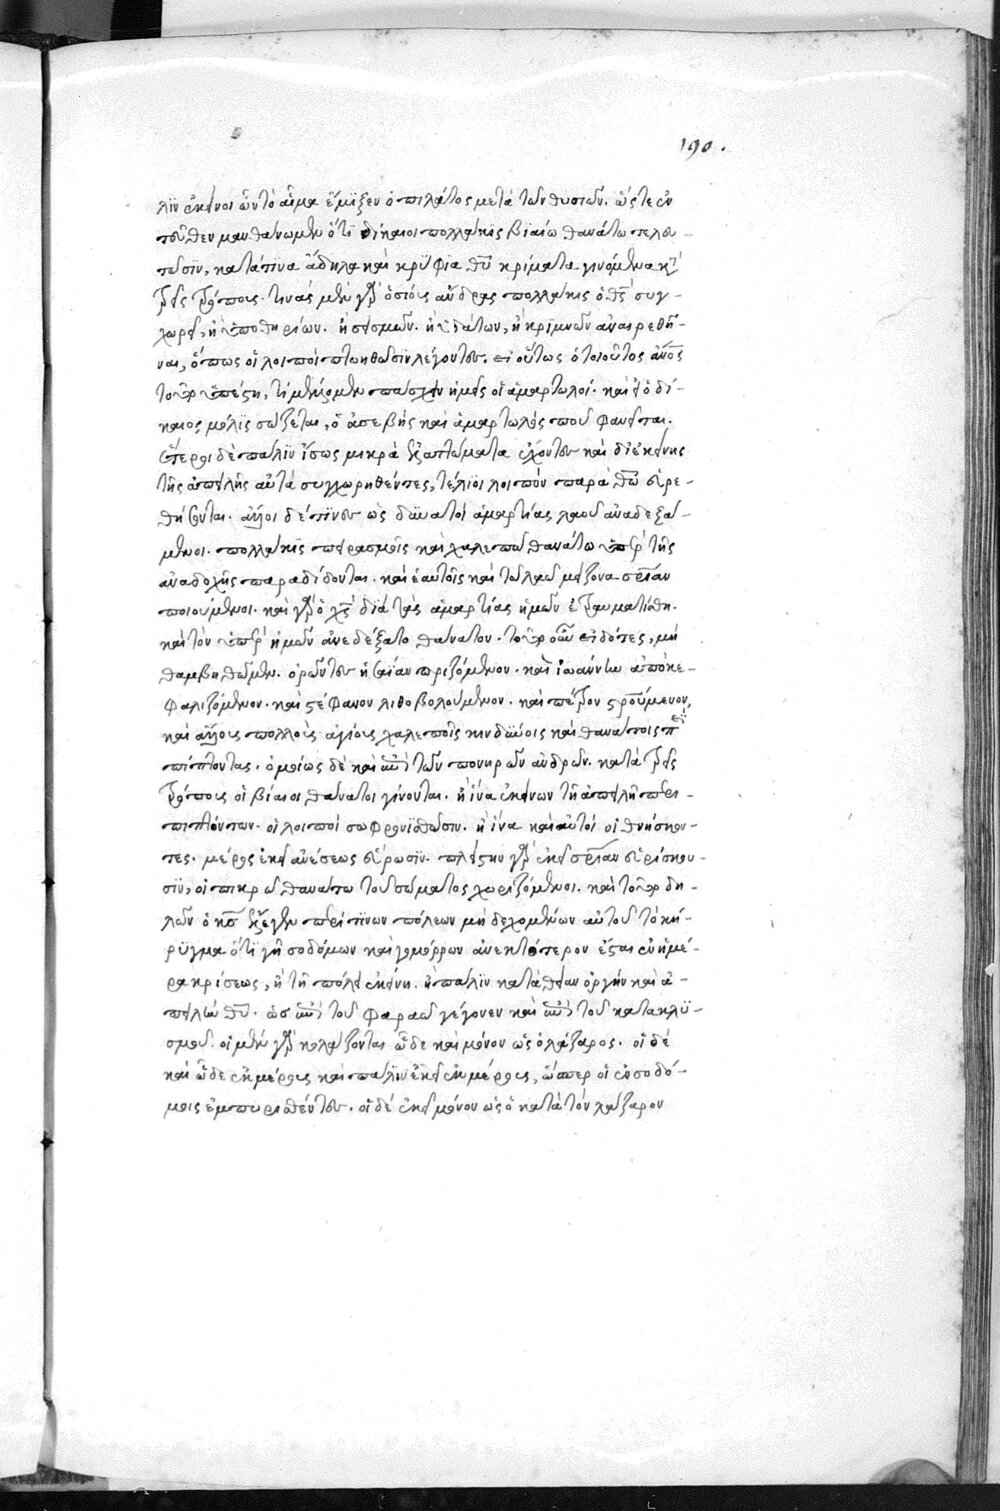 190.
λϊν ἐκεῖνοι ὧν τὸ αἷμα ἔμϊξεν ὁ πιλάτος μετὰ τῶν θυσιῶν. ὥςτε ἐν
τεῦθεν μανθάνωμεν ὅτϊ δίκαιοι πολλάκις βϊαίω θανάτω τελευ-
τῶσϊν, κατά τινα ἄδηλα καὶ κρύφϊα θῦ κρίματα γινόμενα κτ
τρεῖς τρόπους. τινὰς μὲν γὰρ ὁσίους ἄνδρας πολλάκις ὁ θς συγ-
χωρεῖ, ἢ ὑπὸ θηρίων. ἢ σεισμῶν. ἢ ὑδάτων, ἢ κρϊμνῶν ἀναιρεθῆ-
ναι, ὅπως οἱ λοιποὶ πτωηθῶσϊν λέγοντες. εἰ οὕτως ὁ τοιοῦτος ἄνος
τοῦτο ὑπέστη, τί μὲν πάσχειν ἡμεῖς οἱ ἁμαρτωλοί. καὶ εἰ ὁ δί-
καιος μόλϊς σώζεται, ὁ ἀσεβὴς καὶ ἁμαρτωλὸς ποῦ φανεῖται.
ἕτεροι δὲ πάλϊν ἴσως μικρὰ πταίσματα ἔχοντες καὶ δι' ἐκείνης
τῆς ἀπειλῆς αὐτὰ συγχωρηθέντες, τέλϊοι λοιπὸν παρὰ θῶ εὑρε-
θήσονται. ἄλλοι δέ τινες ὡς δυνατοὶ ἁμαρτίας λαοῦ ἀναδεξά-
μενοι. πολλάκϊς πειρασμοῖς καὶ χαλεπῶ θανάτω ὑπὲρ τῆς
ἀναδοχῆς παραδίδονται. καὶ ἑαυτοῖς καὶ τῶ λαῶ μείζονα σρίαν
ποιούμενοι. καὶ γὰρ ὁ χς διὰ τὰς ἁμαρτίας ἡμῶν ἐτραυματίσθη.
καὶ τὸν ὑπὲρ ἡμῶν ἀνεδέξατο θάνατον. τοῦτο οὖν εἰδότες, μὴ
θαμβηθῶμεν. ὁρῶντες ἡσαΐαν πριζόμενον. καὶ ἰωάννην ἀποκε-
φαλιζόμενον. καὶ στέφανον λιθοβολούμενον. καὶ πέτρον σταυρούμενον,
καὶ ἄλλους πολλοὺς ἁγίους χαλεποῖς κινδύνοις καὶ θανάτοις περϊ
πίπτοντας. ὁμοίως δὲ καὶ ἐπὶ τῶν πονηρῶν ἀνδρῶν. κατὰ τρεῖς
τρόπους οἱ βίαιοι θάνατοι γίνονται. ἢ ἵνα ἐκείνων τῆ ἀπειλῆ περι-
πιπτόντων. οἱ λοιποὶ σωφρονϊσθῶσιν. ἢ ἵνα καὶ αὐτοὶ οἱ θνήσκον-
τες. μέρος ἐκεῖ ἀνέσεως εὕρωσϊν. πλείστην γὰρ ἐκεῖ σρίαν εὑρίσκου-
σϊν, οἱ πικρῶ θανάτω τοῦ σώματος χωριζόμενοι. καὶ τοῦτο δη-
λῶν ὁ κς ἔλεγεν περί τινων πόλεων μὴ δεχομένων αὐτοῦ τὸ κή-
ρϋγμα ὅτϊ γῆ σοδόμων καὶ γομόρρων ἀνεκτότερον ἔσται ἐν ἡμέ-
ρα κρίσεως, ἢ τῆ πόλει ἐκείνη. ἢ πάλϊν κατὰ θείαν ὀργὴν καὶ ἀ-
πειλὴν θῦ. ὡς ἐπὶ τοῦ φαραὼ γέγονεν καὶ ἐπὶ τοῦ κατακλϋ-
σμοῦ. οἱ μὲν γὰρ κολάζονται ὧδε καὶ μόνον ὡς ὁ λάζαρος. οἱ δὲ
καὶ ὧδε ἐκ μέρους καὶ πάλϊν ἐκεῖ ἐκ μέρους, ὥσπερ οἱ ἐν σοδό-
μοις ἐμπυρισθέντες. οἱ δὲ ἐκεῖ μόνον ὡς ὁ κατὰ τὸν λάζαρον